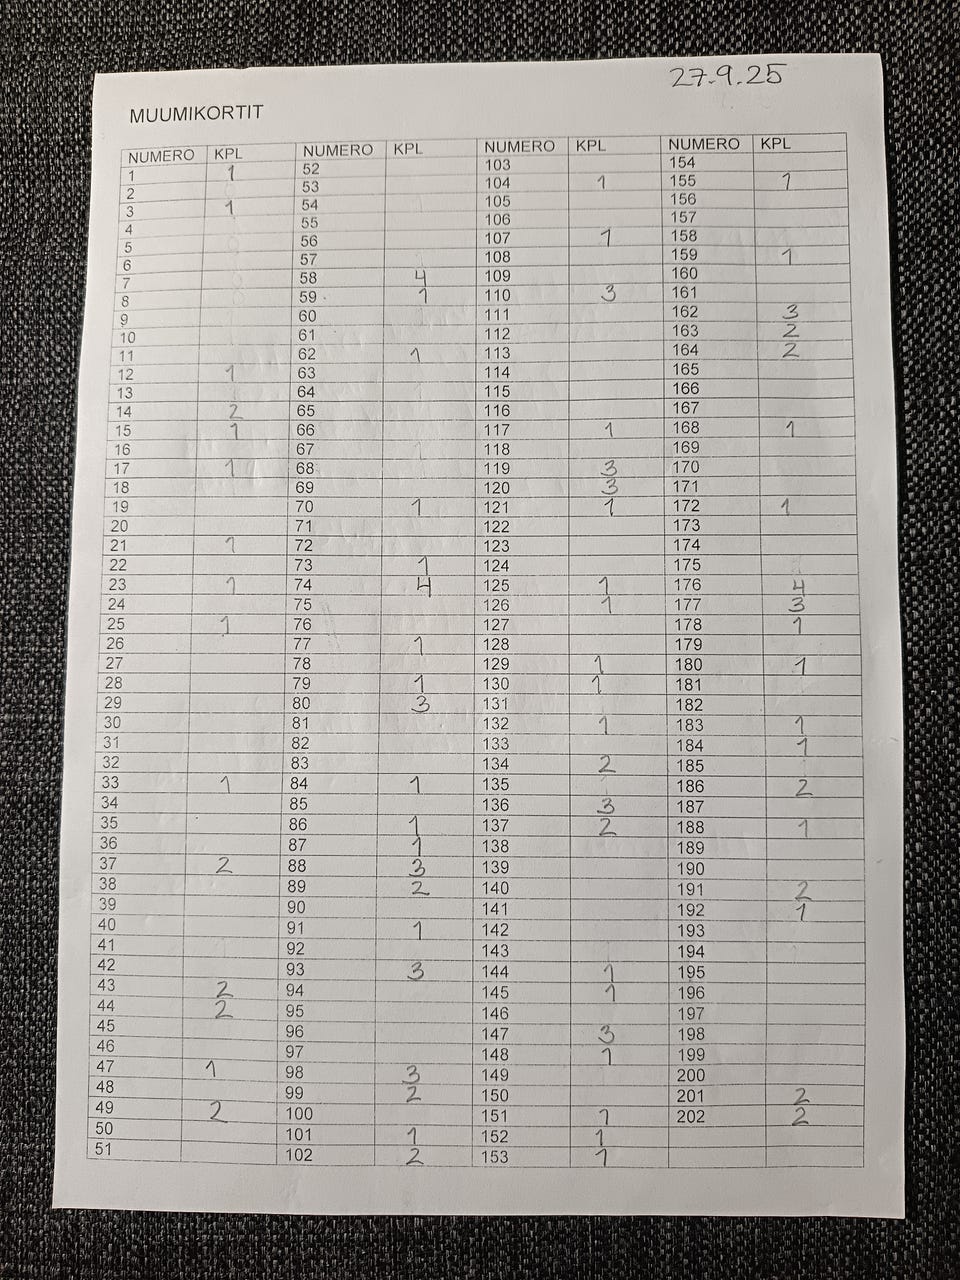 27.9.25
MUUMIKORTIT
NUMERO KPL NUMERO KPL NUMERO KPL NUMERO KPL
1 1 52 103 154
2 53 104 1 155 1
3 1 54 105 156
4 55 106 157
5 56 107 1 158
6 57 108 159 1
7 58 4 109 160
8 59 1 110 3 161
9 60 111 162 3
10 61 112 163 2
11 62 1 113 164 2
12 1 63 114 165
13 64 115 166
14 2 65 116 167
15 1 66 117 1 168 1
16 67 118 169
17 1 68 119 3 170
18 69 120 3 171
19 70 1 121 1 172 1
20 71 122 173
21 1 72 123 174
22 73 1 124 175
23 1 74 4 125 1 176 4
24 75 126 1 177 3
25 1 76 127 178 1
26 77 1 128 179
27 78 129 1 180 1
28 79 1 130 1 181
29 80 3 131 182
30 81 132 1 183 1
31 82 133 184 1
32 83 134 2 185
33 1 84 1 135 186 2
34 85 136 3 187
35 86 1 137 2 188 1
36 87 1 138 189
37 2 88 3 139 190
38 89 2 140 191 2
39 90 141 192 1
40 91 1 142 193
41 92 143 194
42 93 3 144 1 195
43 2 94 145 1 196
44 2 95 146 197
45 96 147 3 198
46 97 148 1 199
47 1 98 3 149 200
48 99 2 150 201 2
49 2 100 151 1 202 2
50 101 1 152 1
51 102 2 153 1